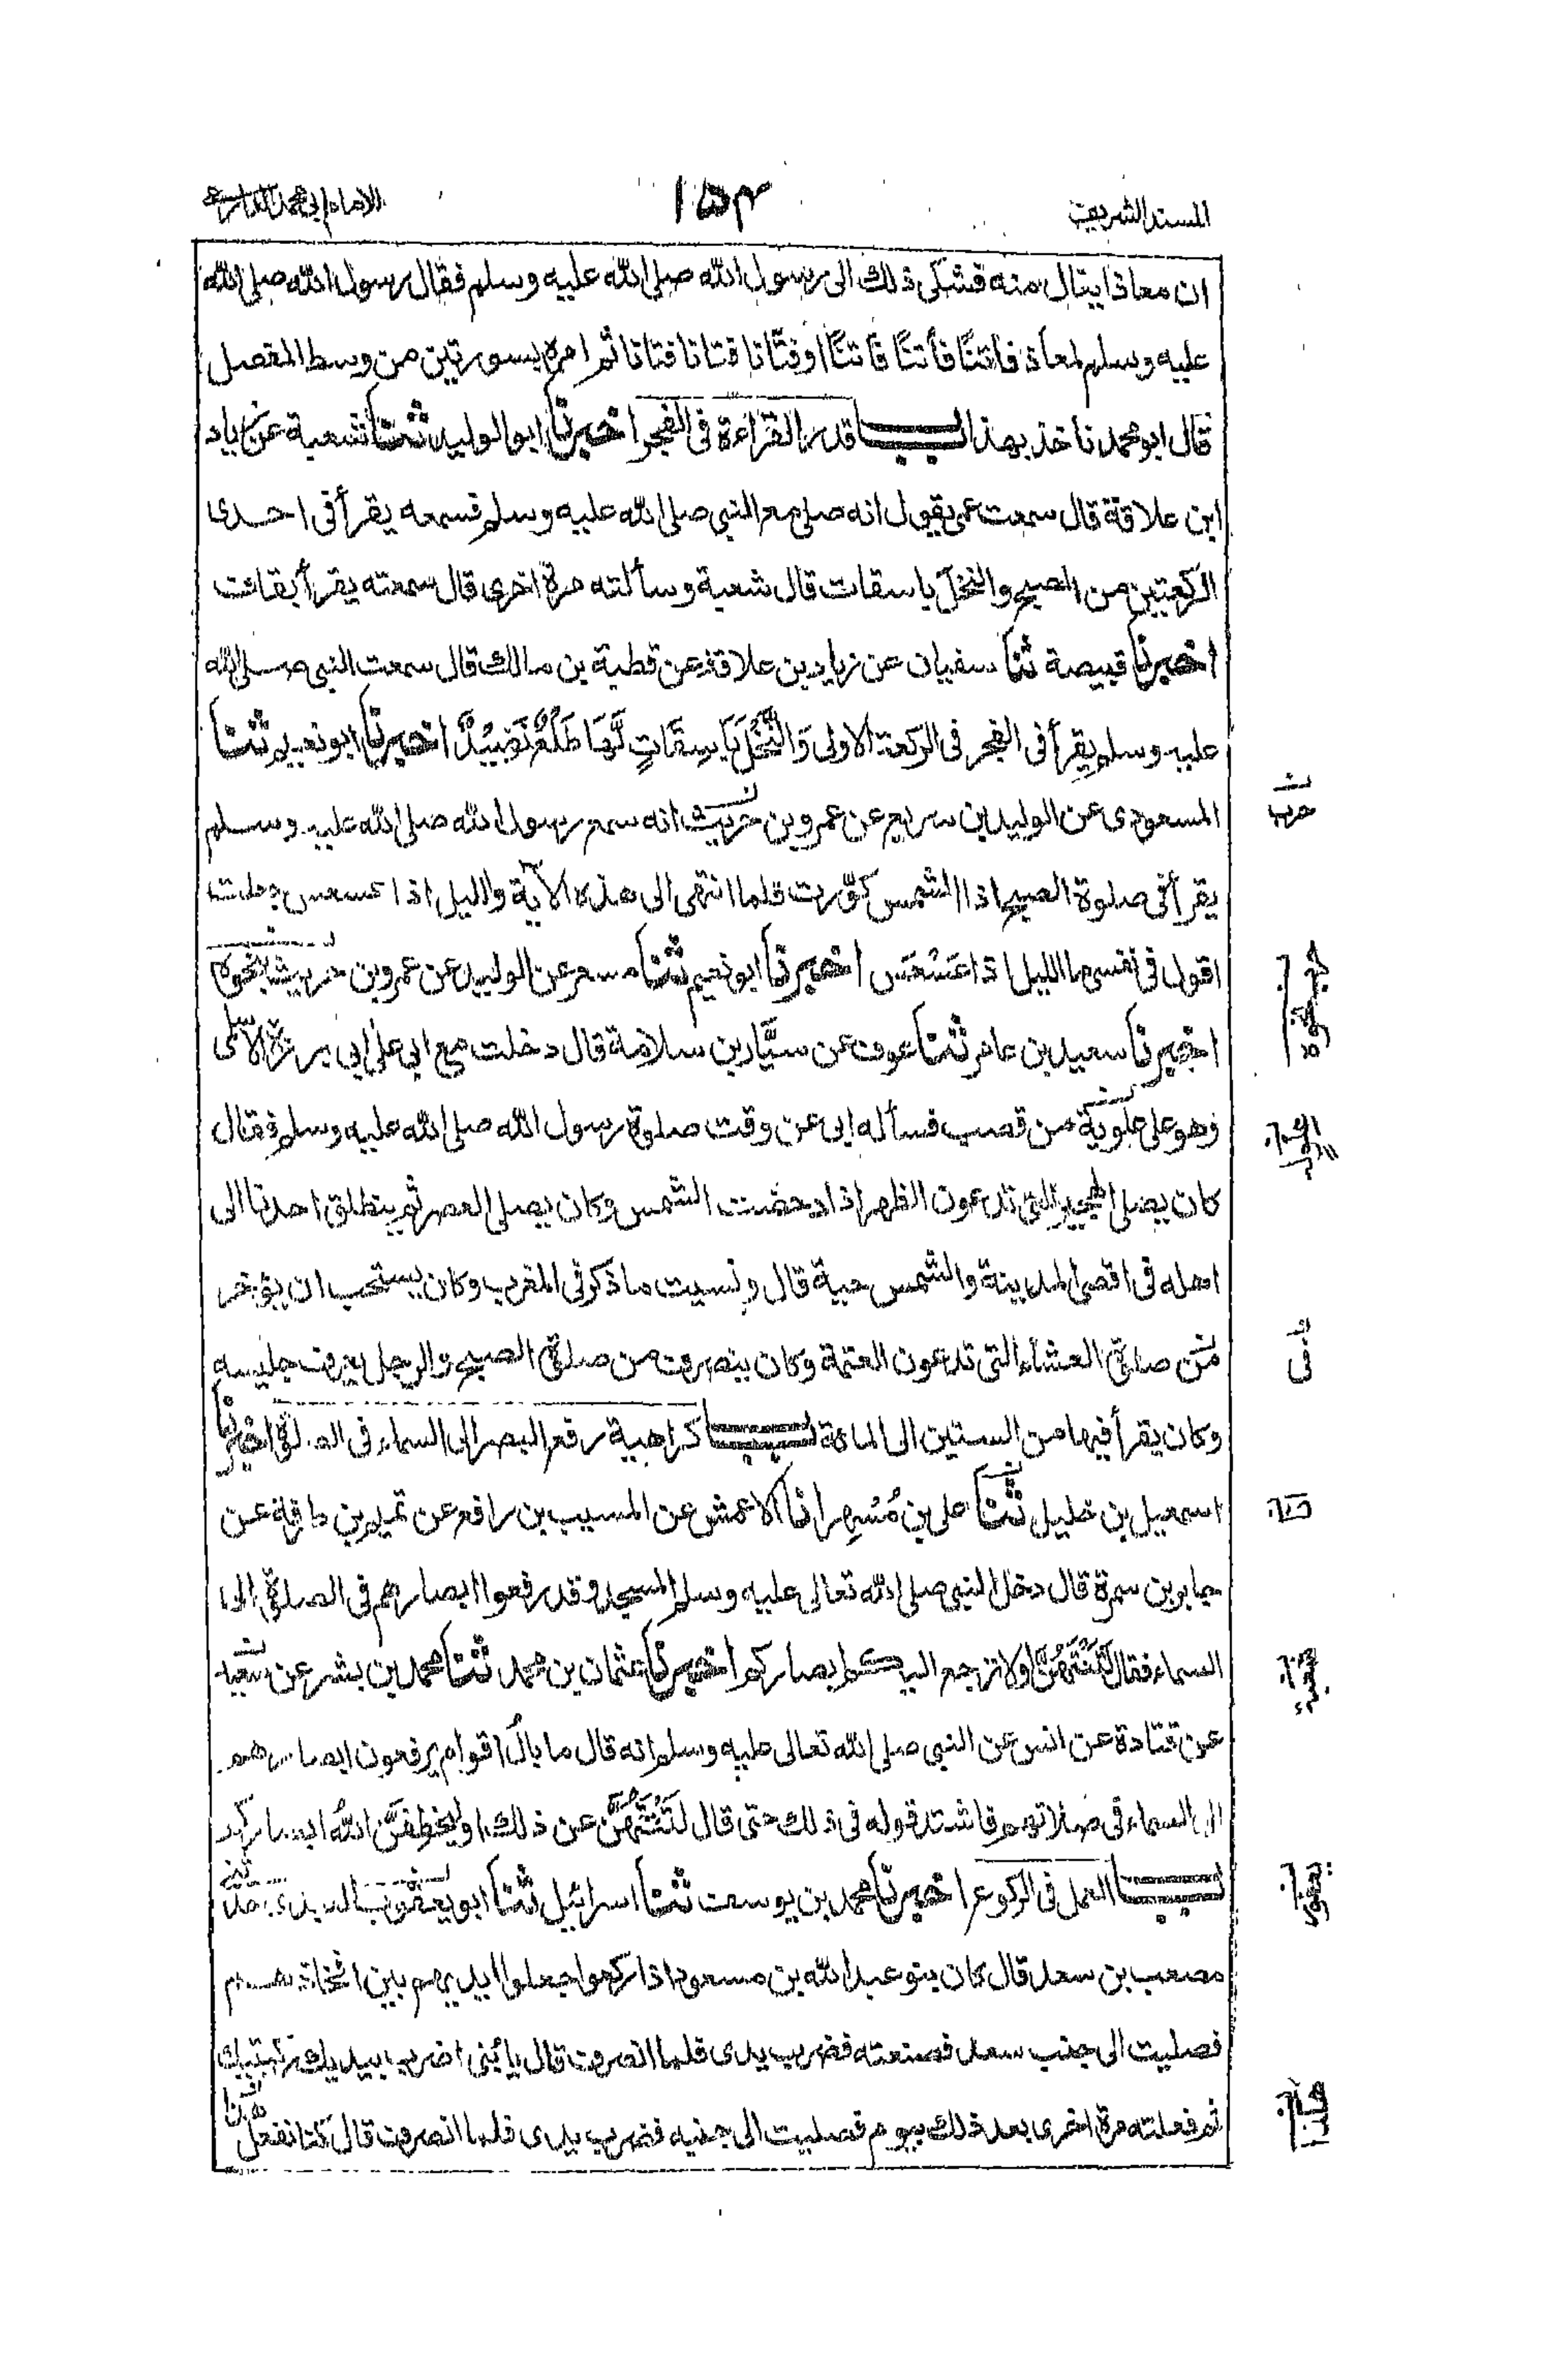 المسند الشريف
١٥٣
الامام ابي محمد الدارمي
ان معاذا ينال منه فشكى ذلك الى رسول الله صلى الله عليه وسلم فقال رسول الله صلى الله
عليه وسلم لمعاذ فاتنًا فأتنًا فأتنًا اوفتّانا فتانا فتانا ثم امره بسورتين من وسط المفصل
قال ابو محمد ناخذ بهذا باب قدر القراءة فى الفجر اخبرنا ابو الوليد ثنا شعبة عن زياد
ابن علاقة قال سمعت عمى يقول انه صلى مع النبي صلى الله عليه وسلم فسمعه يقرأ فى احدى
الركعتين من الصبح والنخل باسقات قال شعبة وسألته مرة اخرى قال سمعته يقرأ بقاف
اخبرنا قبيصة ثنا سفيان عن زياد بن علاقة عن قطبة بن مالك قال سمعت النبى صلى الله
عليه وسلم يقرأ فى الفجر فى الركعة الاولى وَالنَّخْلَ بَاسِقَاتٍ لَّهَا طَلْعٌ نَضِيْدٌ اخبرنا ابو نعيم ثنا
المسعودى عن الوليد بن سريع عن عمرو بن حريث انه سمع رسول الله صلى الله عليه وسلم
يقرأ فى صلوة الصبح اذا الشمس كوّرت فلما انتهى الى هذه الآية والليل اذا عسعس جعلت
اقول فى نفسى ما الليل اذا عَسْعَسَ اخبرنا ابو نعيم ثنا مسعر عن الوليد عن عمرو بن حريث بنحوه
اخبرنا سعيد بن عامر ثنا عوف عن سيَّار بن سلامة قال دخلت مع ابى على ابى برزة الاسلمى
وهو على علوية من قصب فسأله ابى عن وقت صلوة رسول الله صلى الله عليه وسلم فقال
كان يصلى الهجير التى تدعون الظهر اذا دحضت الشمس وكان يصلى العصر ثم ينطلق احدنا الى
اهله فى اقصى المدينة والشمس حية قال ونسيت ما ذكر فى المغرب وكان يستحب ان يؤخر
من صلوة العشاء التى تدعون العتمة وكان ينصرف من صلوة الصبح والرجل يعرف جليسه
وكان يقرأ فيها من الستين الى المائة باب كراهية رفع البصر الى السماء فى الصلوة اخبرنا
اسمعيل بن خليل ثنا على بن مُسْهِر انا الاعمش عن المسيب بن رافع عن تميم بن طرفة عن
جابر بن سمرة قال دخل النبى صلى الله تعالى عليه وسلم المسجد وقد رفعوا ابصارهم فى الصلوة الى
السماء فقال لَتَنْتَهُنَّ اولا ترجع اليكم ابصاركم اخبرنا عثمان بن محمد ثنا محمد بن بشر عن سعيد
عن قتادة عن انس عن النبى صلى الله تعالى عليه وسلم انه قال ما بالُ اقوام يرفعون ابصارهم
الى السماء فى صلاتهم فاشتد قوله فى ذلك حتى قال لَتَنْتَهُنَّ عن ذلك او ليخطفَنَّ اللهُ ابصاركم
باب العمل فى الركوع اخبرنا محمد بن يوسف ثنا اسرائيل ثنا ابو يعفور العبدى حدثنى
مصعب بن سعد قال كان بنو عبد الله بن مسعود اذا ركعوا جعلوا ايديهم بين افخاذهم
فصليت الى جنب سعد فصنعته فضرب يدى فلما انصرف قال يا بُنى اضرب بيديك ركبتيك
ثم فعلته مرة اخرى بعد ذلك بيوم فصليت الى جنبه فضرب يدى فلما انصرف قال كنا نفعل هذا